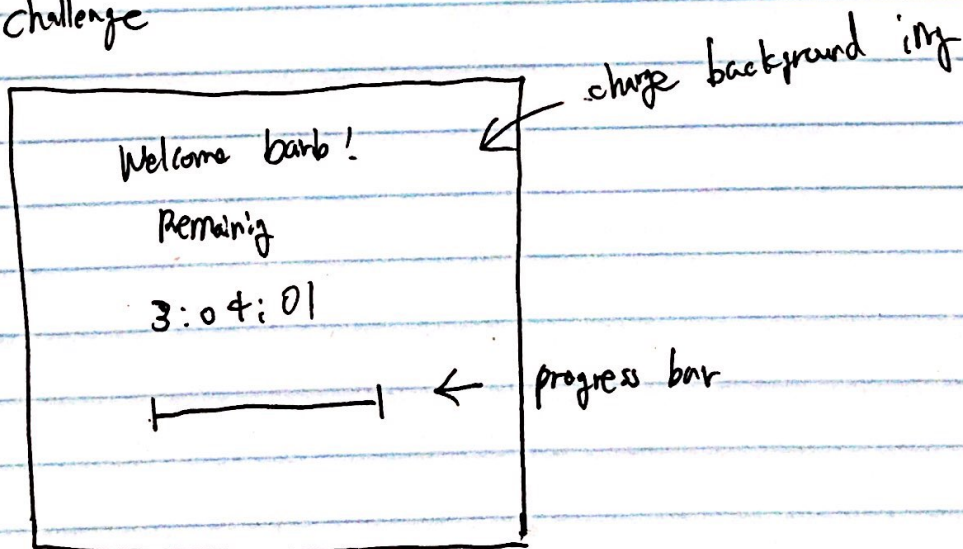 challenge
change background img
Welcome barb!
Remaining
3:04:01
progress bar